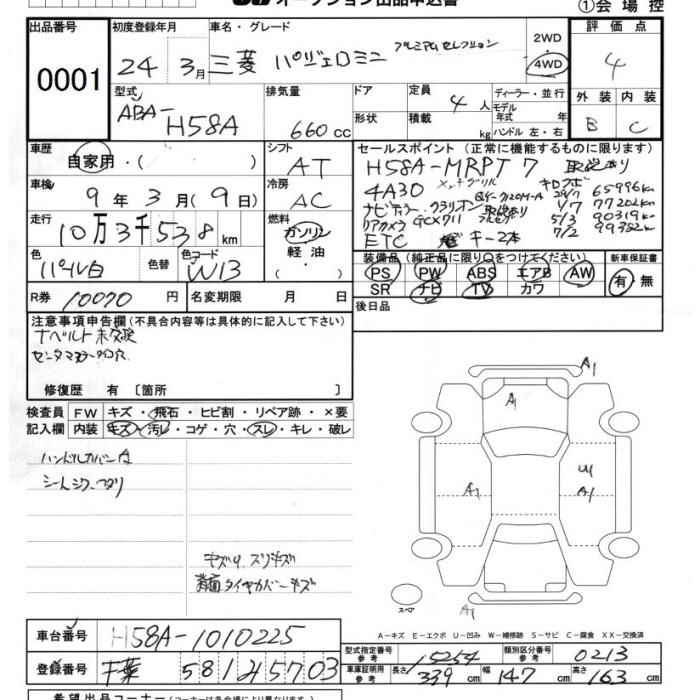 オークション出品申込書
①会場控
出品番号
0001
初度登録年月
24年3月
車名・グレード
三菱 パジェロミニ プレミアムセレクション
2WD・4WD
評価点
4
型式
ABA-H58A
排気量
660cc
ドア
形状
定員
4人
積載
kg
ディーラー・並行
モデル年式 年
ハンドル左・右
外装 内装
B C
車歴
自家用・( )
シフト
AT
車検
9年3月(9日)
冷房
AC
走行
10万3千538km
燃料
ガソリン
軽油
( )
色
パール白
色替
色コード
W13
R券
10070円
名変期限 月 日
セールスポイント(正常に機能するものに限ります)
H58A-MRPT7 取説あり
4A30
29/7 65996km
1/7 77202km
5/3 90319km
7/2 99352km
リアカメラ
ETC キー2本
装備品(純正品に限り○をつけてください)
新車保証書
PS PW ABS エアB AW
SR ナビ TV カワ
有・無
後日品
注意事項申告欄(不具合内容等は具体的に記入して下さい)
ナベルト未交換
修復歴 有 〔箇所 〕
検査員 FW キズ・飛石・ヒビ割・リペア跡・×要
記入欄 内装 キズ・汚レ・コゲ・穴・スレ・キレ・破レ
ハンドルカバー有
シートシワ
キズ
スリキズ
背面タイヤカバーキズ
A1
A1
A1
U1
A1
A1
スペア
A-キズ E-エクボ U-凹み W-補修跡 S-サビ C-腐食 XX-交換済
車台番号
H58A-1010225
登録番号
千葉 581 い 5703
型式指定番号 参考
15254
類別区分番号 参考
0213
車庫証明用 参考
長さ 339cm
幅 147cm
高さ 163cm
希望出品コーナー